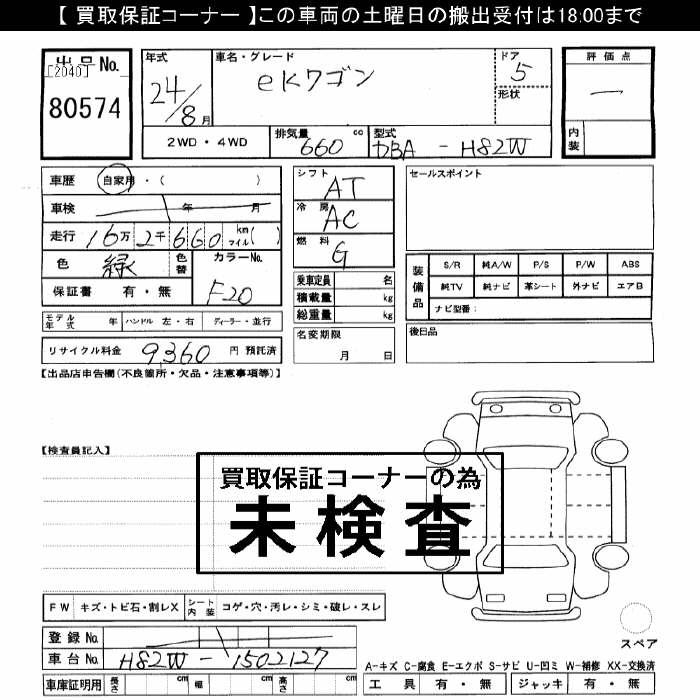 【 買取保証コーナー 】この車両の土曜日の搬出受付は18:00まで
出品No.
[2040]
80574
年式
24/8月
車名・グレード
eKワゴン
ドア
5
形状
評価点
一
内装
2WD・4WD
排気量
660 cc
型式
DBA - H82W
車歴 自家用・( )
車検 年 月
走行 16万2千660 km マイル( )
色 緑
色替
カラーNo.
F20
保証書 有・無
モデル年式 年 ハンドル 左・右 ディーラー・並行
リサイクル料金 9,360 円 預託済
シフト
AT
冷房
AC
燃料
G
乗車定員 名
積載量 kg
総重量 kg
名変期限
月 日
セールスポイント
装備品
S/R 純A/W P/S P/W ABS
純TV 純ナビ 革シート 外ナビ エアB
ナビ型番:
後日品
【出品店申告欄(不良箇所・欠品・注意事項等)】
【検査員記入】
買取保証コーナーの為
未検査
FW キズ・トビ石・割レX シート内装 コゲ・穴・汚レ・シミ・破レ・スレ
登録No.
車台No. H82W - 1502127
車庫証明用 長さ cm 幅 cm 高さ cm
スペア
A-キズ C-腐食 E-エクボ S-サビ U-凹ミ W-補修 XX-交換済
工具 有・無 ジャッキ 有・無